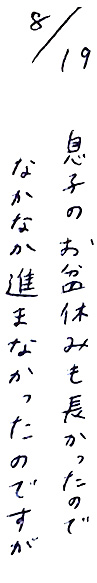 8/19
息子のお盆休みも長かったので
なかなか進まなかったのですが